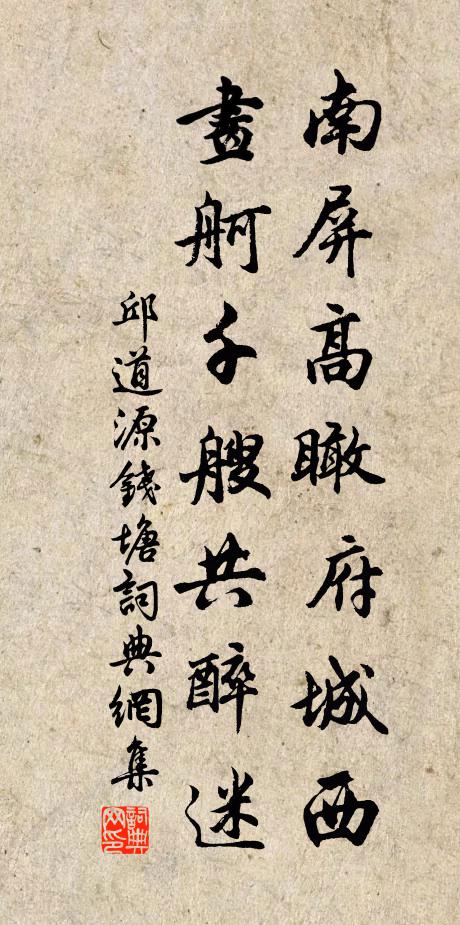 南屏高瞰府城西
畫舸千艘共醉迷
邱道源錢塘詞典網集
詞典网印